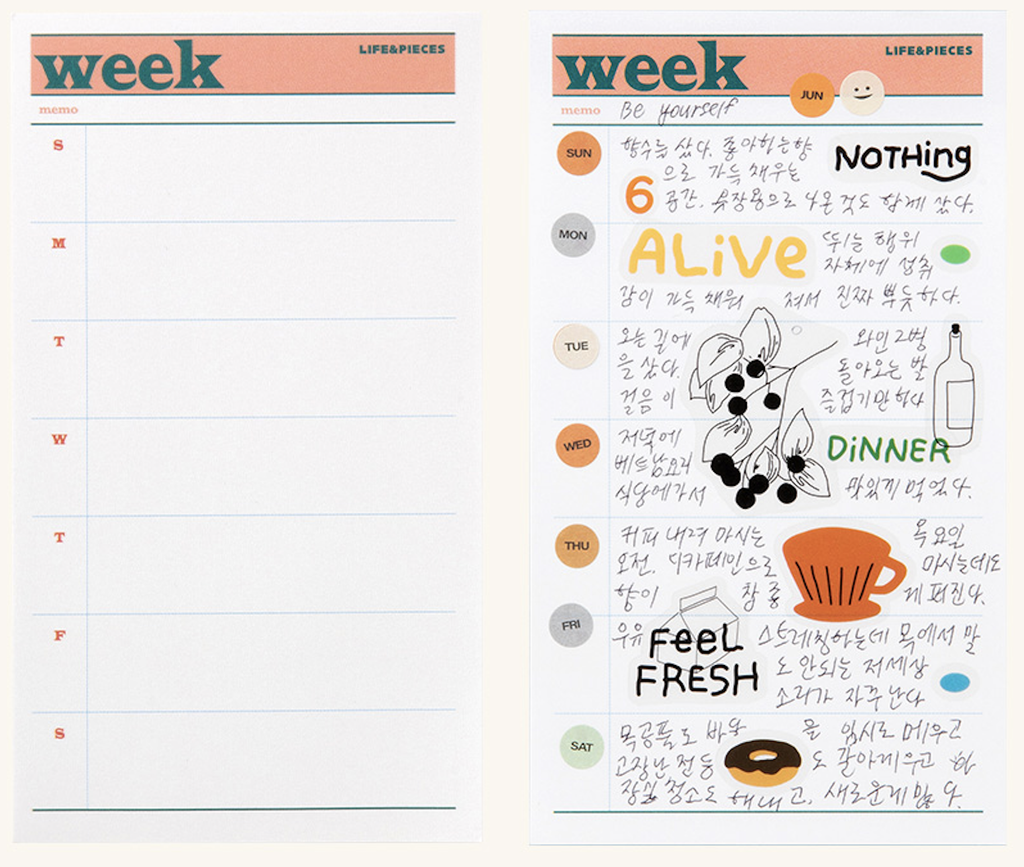 week
LIFE&PIECES
memo
S
M
T
W
T
F
S
week
LIFE&PIECES
JUN
memo Be yourself
SUN
향수를 샀다. 좋아하는 향
NOTHing
으로 가득 채우는
6 공간. 옷장용으로 나온 것도 함께 샀다.
MON
ALiVE
뛰는 행위
자체에 성취
감이 가득 채워 져서 진짜 뿌듯하다.
TUE
오는 길에 와인 2병
을 샀다. 돌아오는 발
걸음이 즐겁기만 하다
WED
저녁에
DiNNER
베트남요리
식당에가서 맛있게 먹었다.
THU
커피 내려 마시는 목요일
오전. 디카페인으로 마시는데도
향이 참 좋 게 퍼진다.
FRI
우유
FeeL
FRESH
스트레칭하는데 목에서 말
도 안되는 저세상
소리가 자꾸 난다
SAT
목공풀로 을 임시로 메우고
고장난 전등 도 갈아끼우고 화
장실 청소도 해내고. 새로운게 많다.